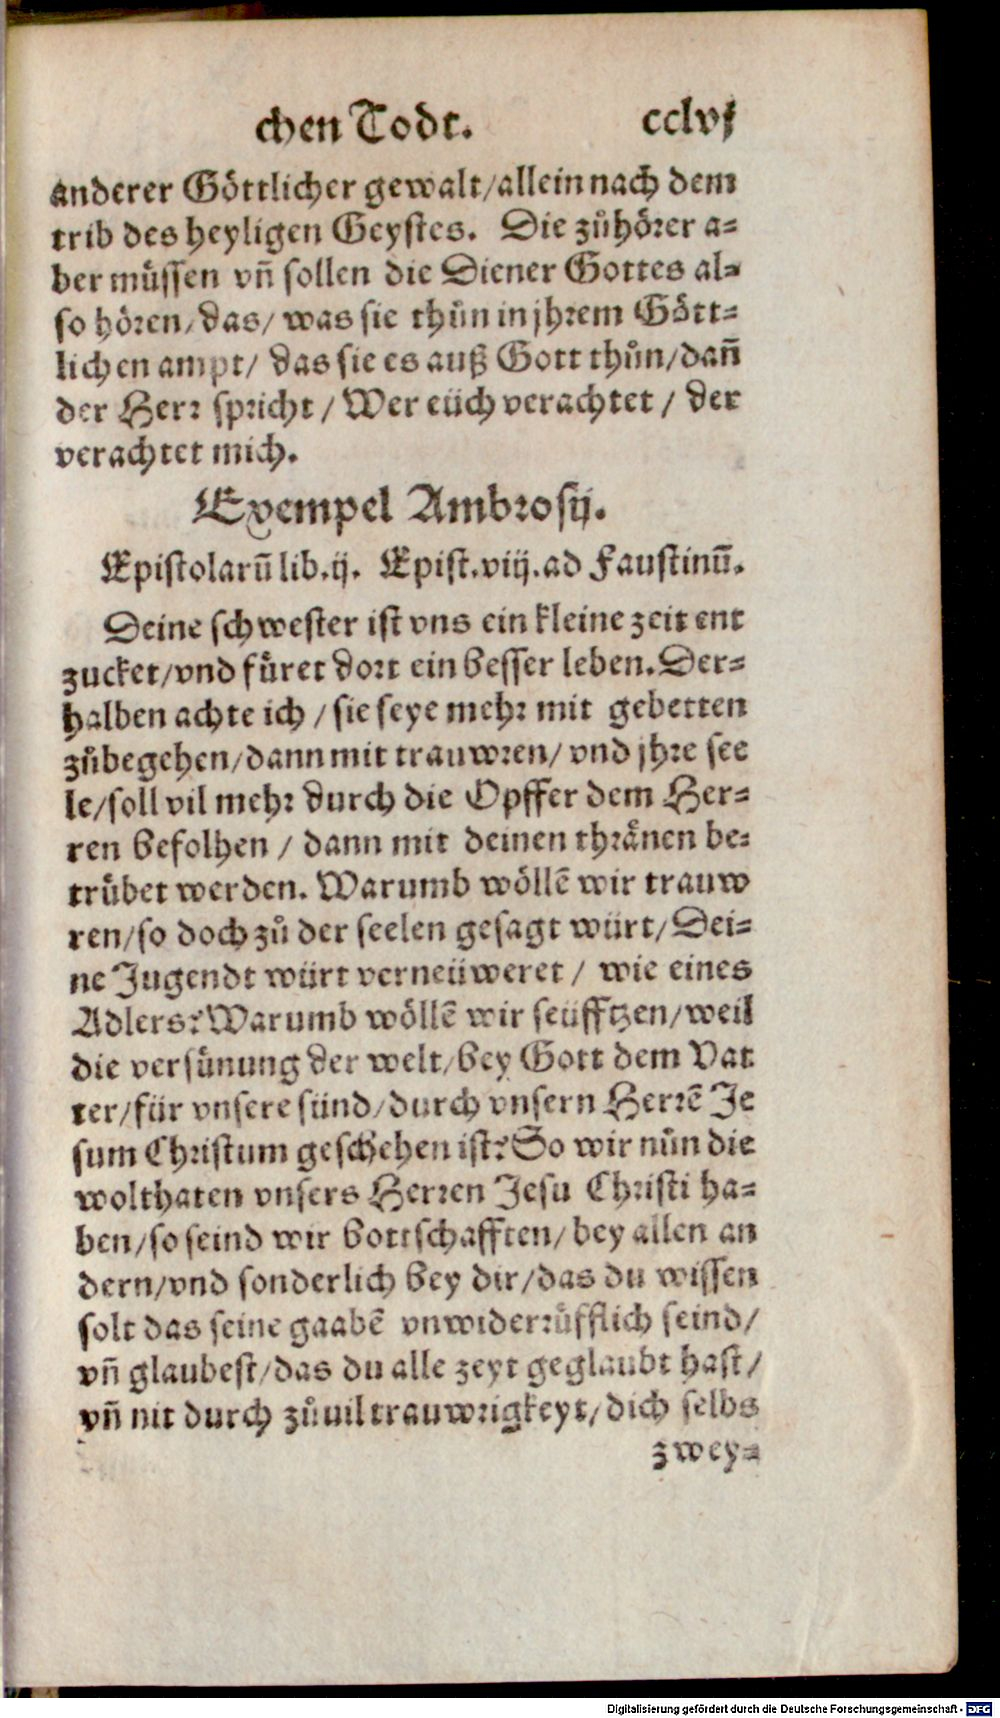 chen Todt. cclvj
anderer Göttlicher gewalt/allein nach dem
trib des heyligen Geystes. Die zůhörer a=
ber müssen vñ sollen die Diener Gottes al=
so hören/das/ was sie thůn in jhrem Gött=
lichen ampt/ das sie es auß Gott thůn/dañ
der Herr spricht / Wer eüch verachtet / der
verachtet mich.
Exempel Ambrosij.
Epistolarū lib.ij. Epist.viij.ad Faustinū.
Deine schwester ist vns ein kleine zeit ent
zucket/vnd füret dort ein besser leben.Der=
halben achte ich / sie seye mehr mit gebetten
zůbegehen/dann mit trauwren/ vnd jhre see
le/soll vil mehr durch die Opffer dem Her=
ren befolhen / dann mit deinen thränen be=
trübet werden. Warumb wöllē wir trauw
ren/so doch zů der seelen gesagt würt/Dei=
ne Jugendt würt verneüweret / wie eines
Adlers? Warumb wöllē wir seüfftzen/weil
die versünung der welt/bey Gott dem Vat
ter/für vnsere sünd/durch vnsern Herrē Je
sum Christum geschehen ist? So wir nůn die
wolthaten vnsers Herren Jesu Christi ha=
ben/so seind wir bottschafften/bey allen an
dern/vnd sonderlich bey dir/das du wissen
solt das seine gaabē vnwiderrüfflich seind/
vñ glaubest/das du alle zeyt geglaubt hast/
vñ nit durch zůuil trauwrigkeyt/dich selbs
zwey=
Digitalisierung gefördert durch die Deutsche Forschungsgemeinschaft - DFG